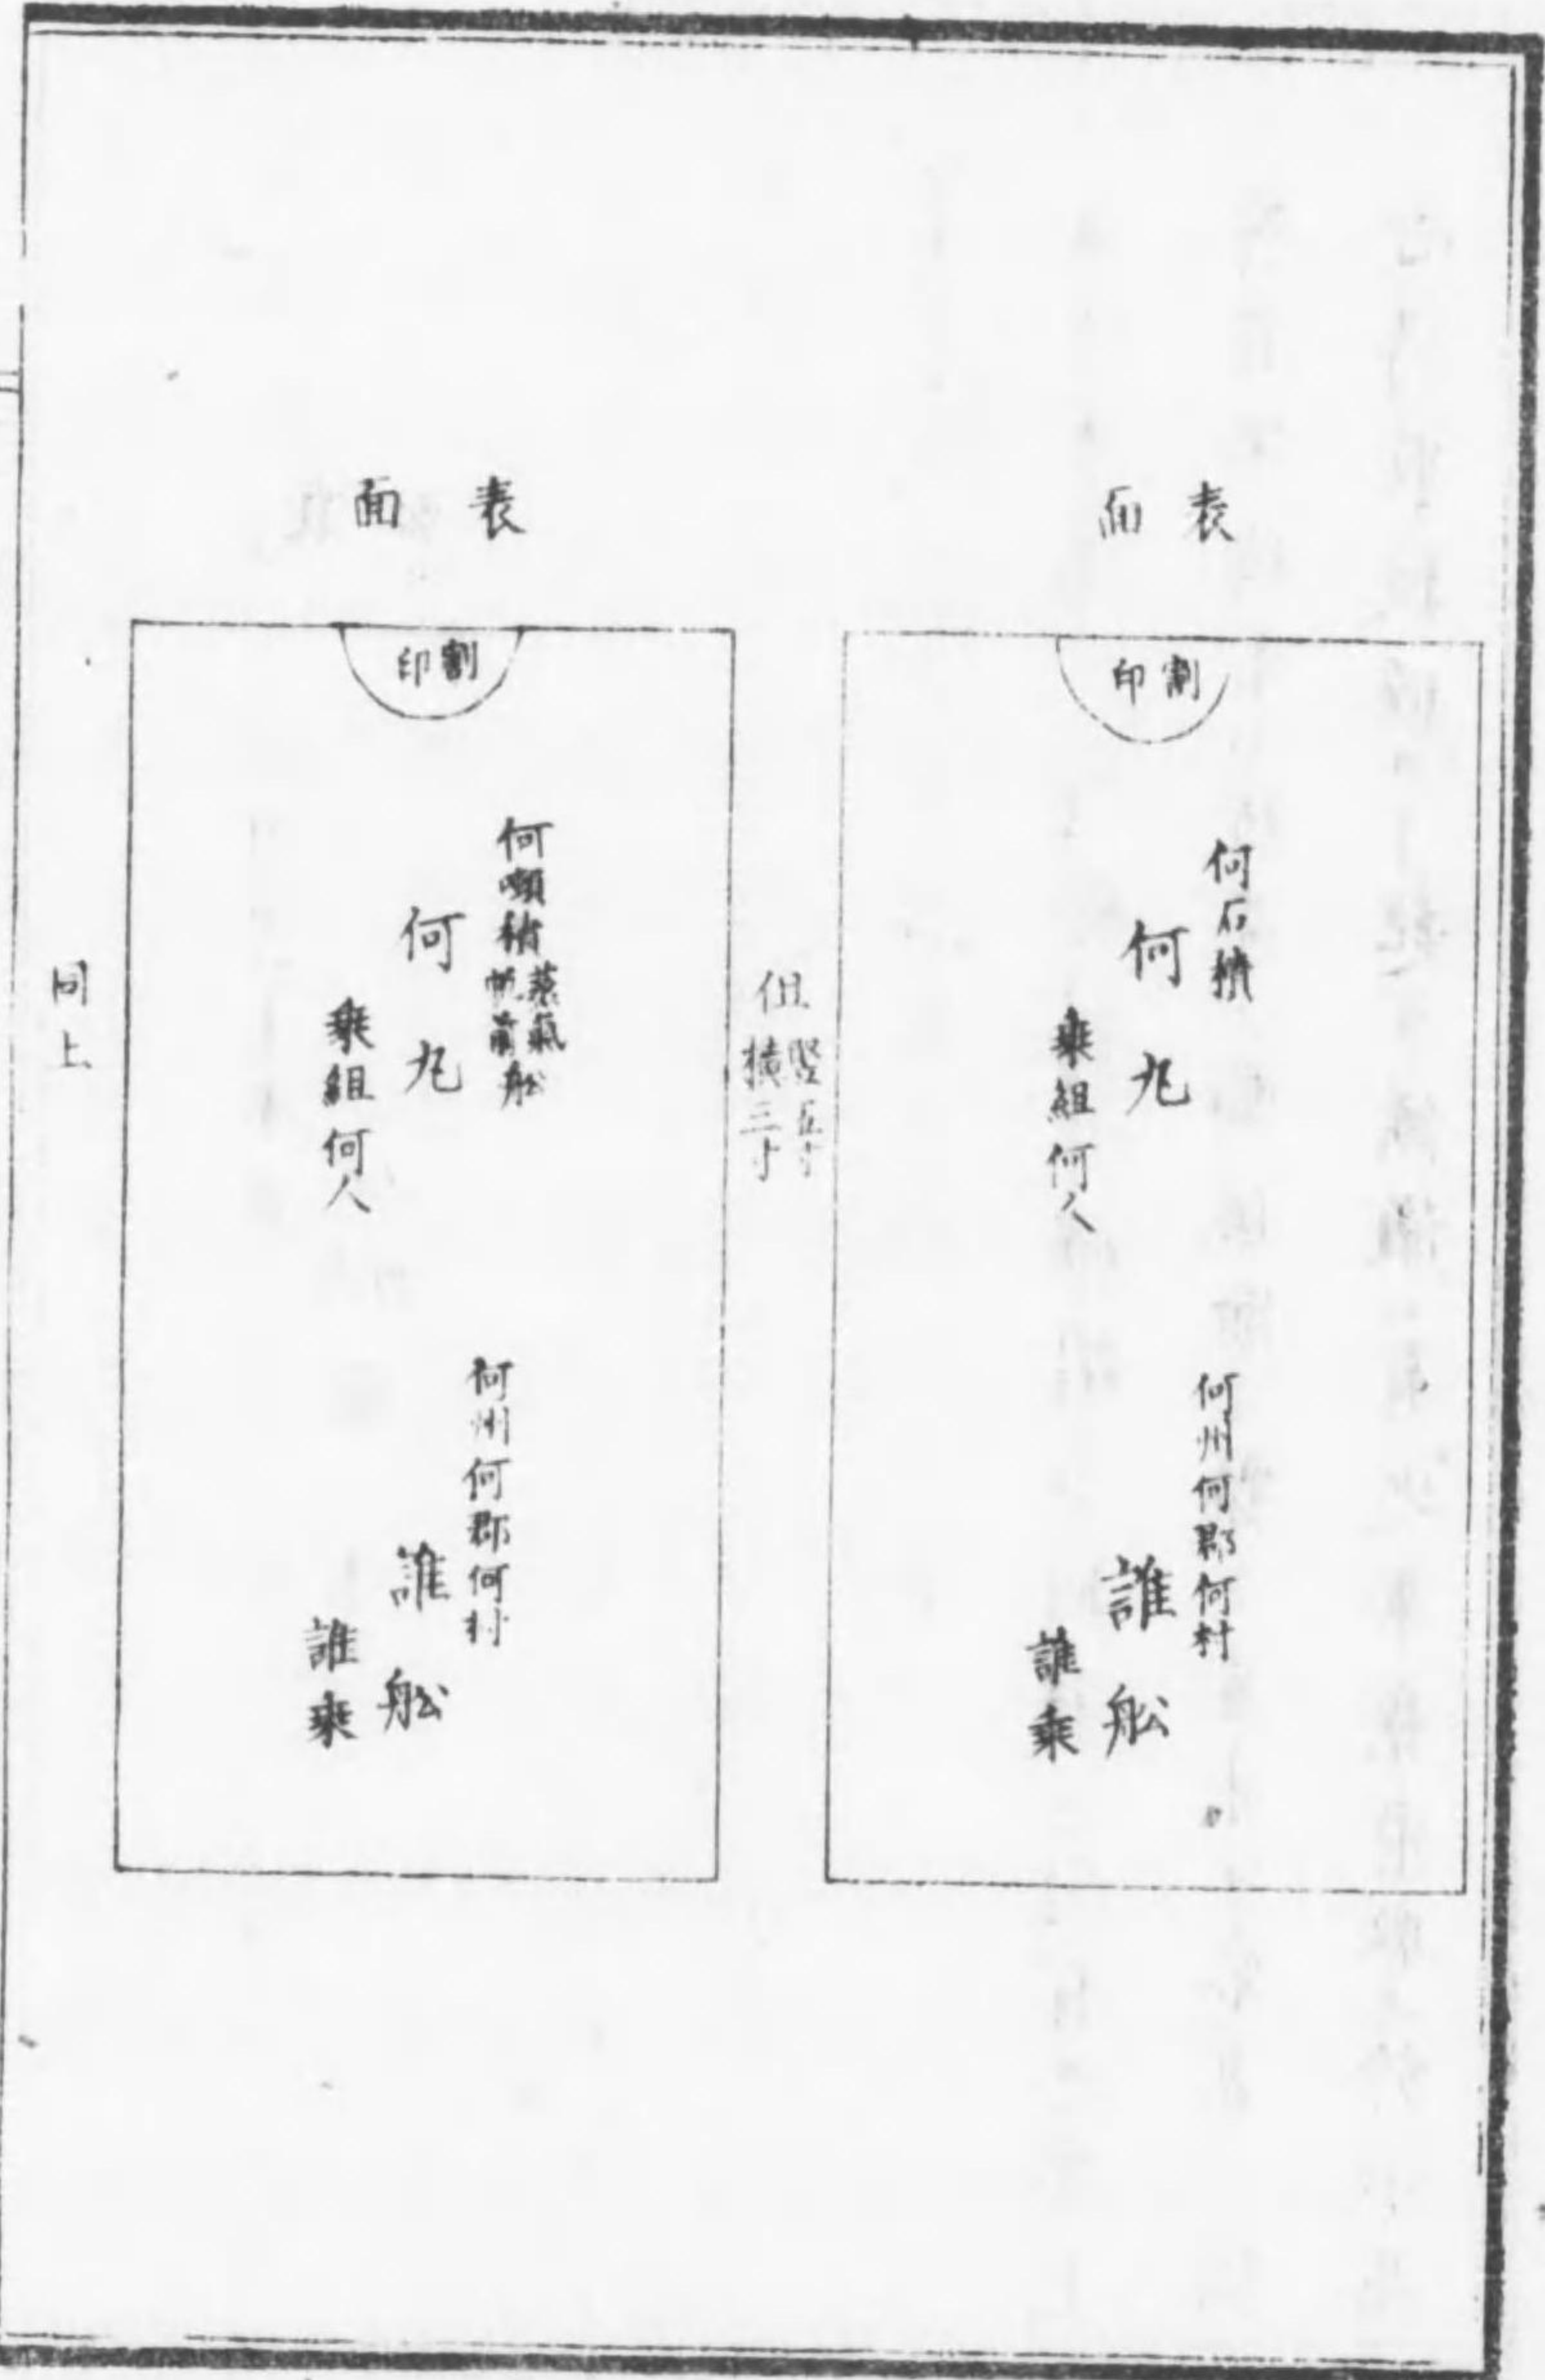 表面
割印
何石積
何丸
乗組何人
何州何郡何村
誰舩
誰乗
但
竪五寸
横三寸
表面
割印
何噸積
蒸氣
帆前
舩
何丸
乗組何人
何州何郡何村
誰舩
誰乗
同上